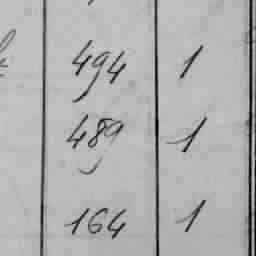 494 1
489 1
164 1